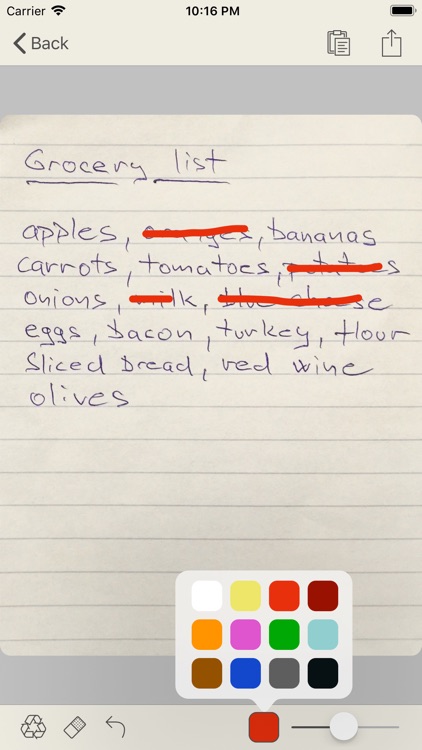 Carrier 10:16 PM
Back
Grocery list
apples, oranges, bananas
carrots, tomatoes, potatoes
onions, milk, blue cheese
eggs, bacon, turkey, flour
Sliced bread, red wine
olives